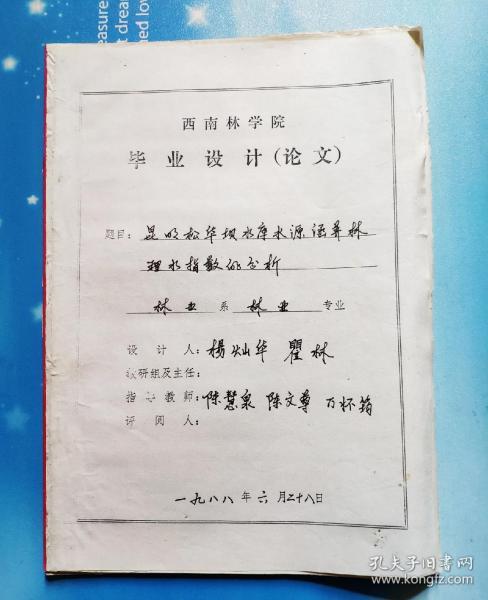 西南林学院
毕业设计(论文)
题目：昆明松华坝水库水源涵养林
理水指数的分析
林业系林业专业
设计人：楊灿华 瞿林
教研组及主任：
指导教师：陈慧泉 陈文尊
评阅人：
一九八八年六月二十八日
孔夫子旧书网
www.kongfz.com